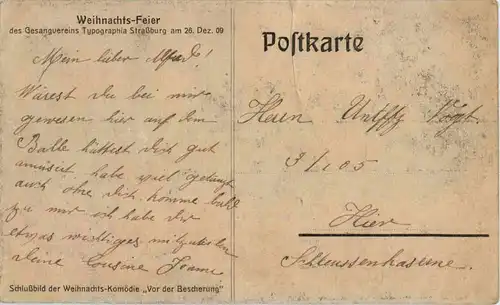 Weihnachts-Feier
des Gesangvereins Typographia Straßburg am 26. Dez. 09
Mein lieber Alfred!
Wärest du bei mir
gewesen hier auf dem
Balle hättest dich gut
amüsirt habe viel getanzt
auch ohne dich, komme bald
zu mir ich habe dir
etwas wichtiges mitzuteilen
deine Cousine Jeanne
Schlußbild der Weihnachts-Komödie „Vor der Bescherung"
Postkarte
Herrn Untffz Voigt
9/105
Hier
Schleussenkaserne